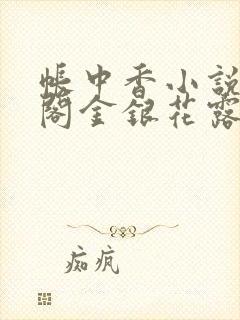 帳中香小說
閣金銀花露
痴疯